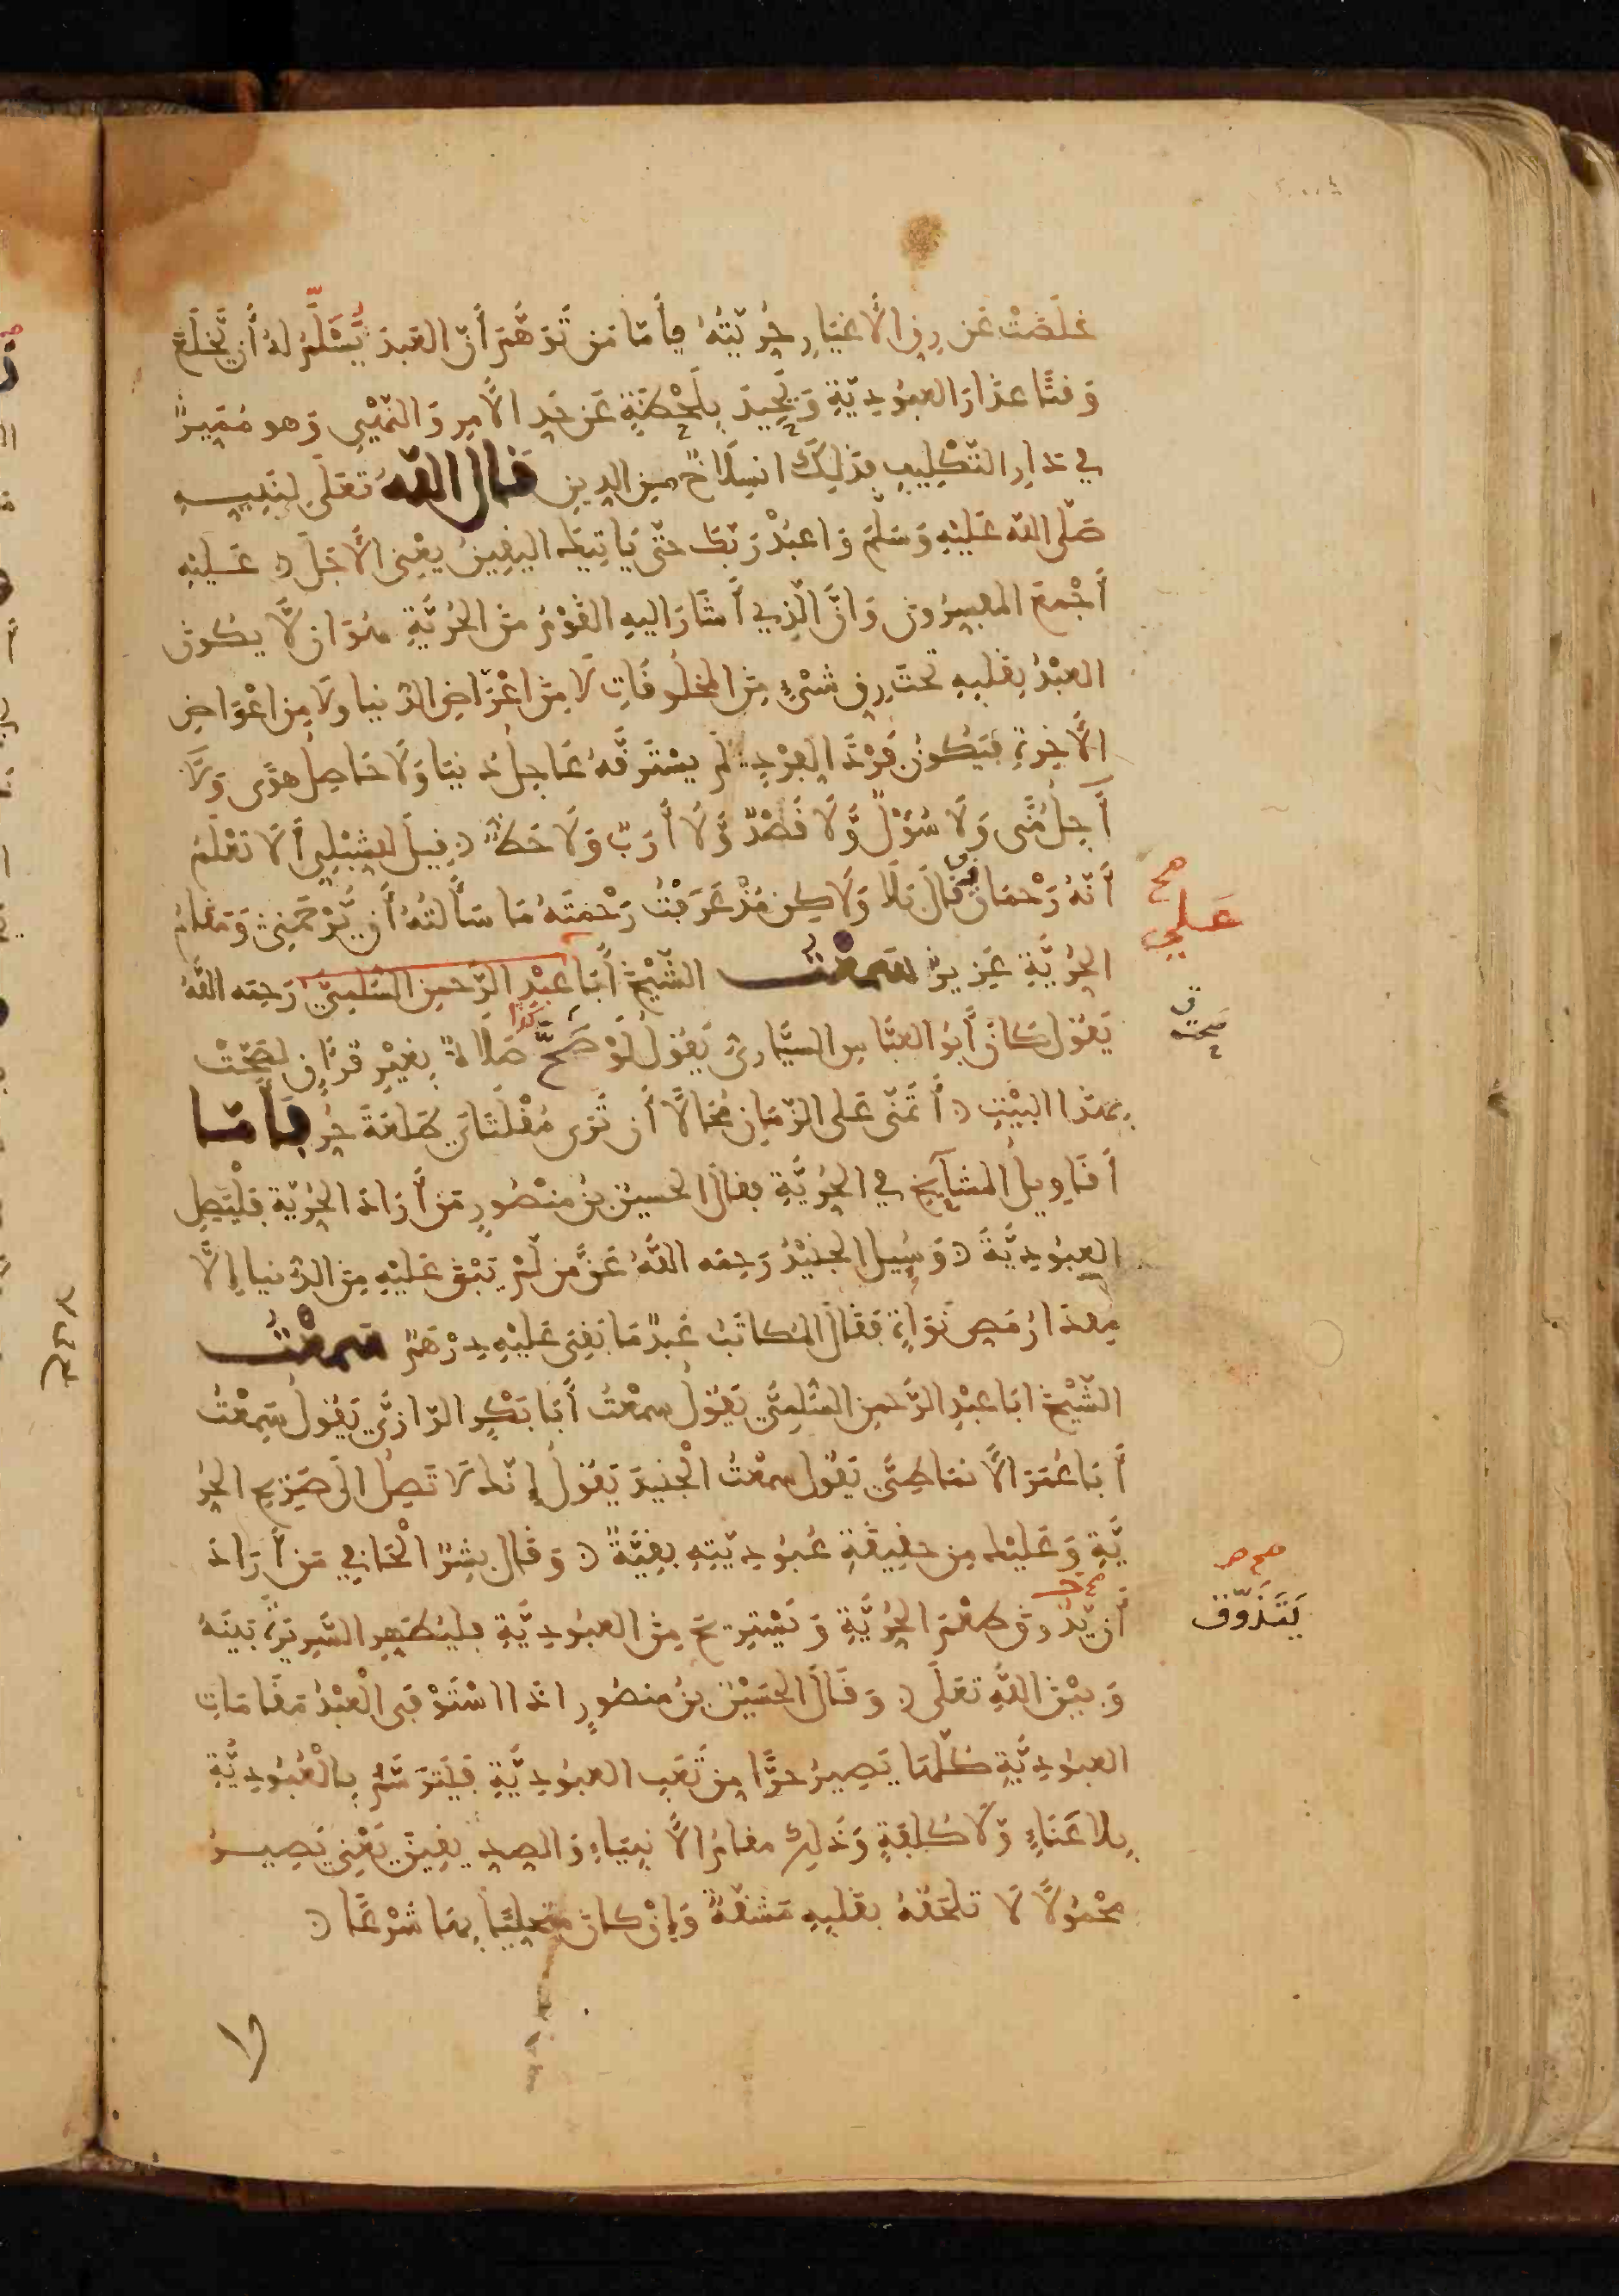 خلصت عن رق الاغيار حريته فأما من توهم أن العبد يسلم له أن يخلع
وقتا عذار العبودية ويحيد بلحظة عن حد الأمر والنهي وهو مميز
في دار التكليف فذلك انسلاخ من الدين قال الله تعلى لنبيه
صلى الله عليه وسلم واعبد ربك حتى ياتيك اليقين يعني الأجل عليه
أجمع المفسرون وان الذي أشار اليه القوم من الحرية هو ان لا يكون
العبد بقلبه تحت رق شيء من المخلوقات لا من اعراض الدنيا ولا من اعواض
الآخرة فيكون فرد الفرد لم يسترقه عاجل دنيا ولا حاصل هوى ولا
آجل منى ولا سؤل ولا قصد ولا أرب ولا حظ قيل للشبلي ألا تعلم
أنه رحمان قال بلا ولاكن مذ عرفت رحمته ما سألته أن يرحمني ومقام
الحرية عزيز سمعت الشيخ أبا عبد الرحمن السلمي رحمه الله
يقول كان أبو العباس السياري يقول لو صح صلاة بغير قرآن لصحت
بهذا البيت أتمنى على الزمان محالا أن ترى مقلتاي طلعة حر فأما
أقاويل المشايخ في الحرية فقال الحسين بن منصور من أراد الحرية فليصل
العبودية وسيل الجنيد رحمه الله عن من لم يبق عليه من الدنيا إلا
مقدار مص نواة فقال المكاتب عبد ما بقي عليه درهم سمعت
الشيخ ابا عبد الرحمن السلمي يقول سمعت أبا بكر الرازي يقول سمعت
أبا عمر الأنماطي يقول سمعت الجنيد يقول إنك لا تصل الى صريح الحر
ية وعليك من حقيقة عبوديته بقية وقال بشر الحافي من أراد
أن يذوق طعم الحرية ويستريح من العبودية فليطهر السريرة بينه
وبين الله تعلى وقال الحسين بن منصور اذا استوفى العبد مقامات
العبودية كلها يصير حرا من تعب العبودية فيترسم بالعبودية
بلا عناء ولا كلفة وذلك مقام الأنبياء والصديقين يعني يصير
محمولا لا تلحقه بقلبه مشقة وإن كان متحليا بها شرعا
صح
علي
صحت
صح
يتذوق